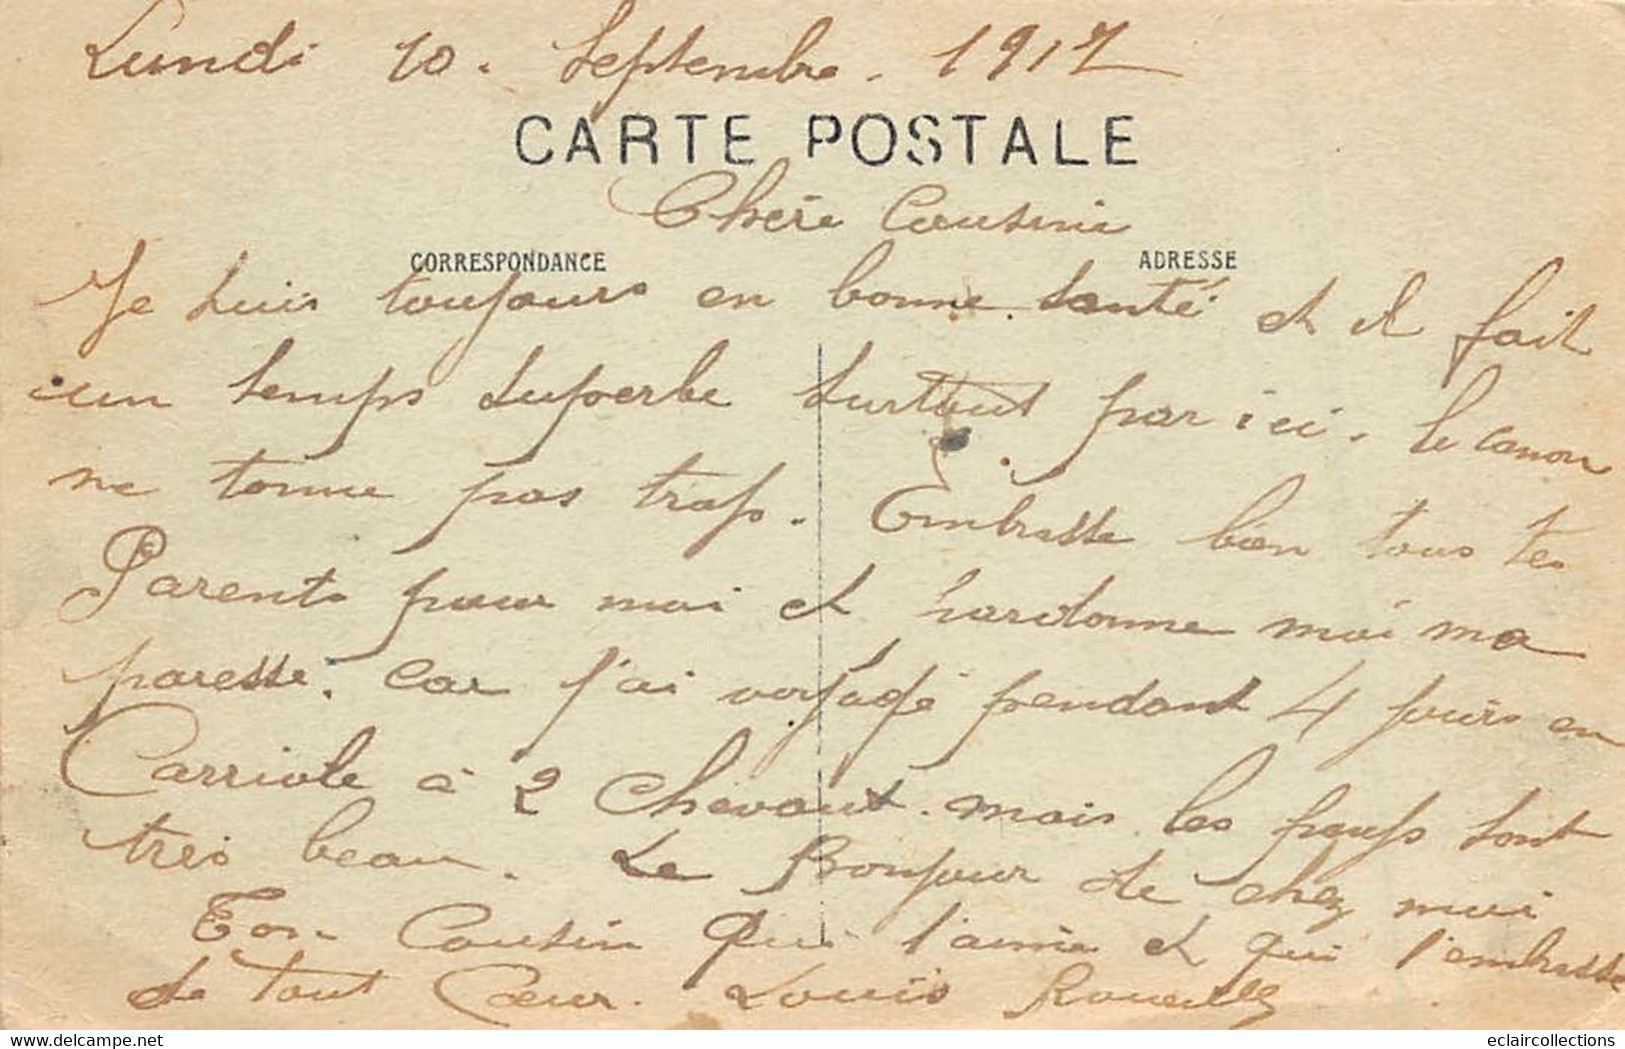 Lundi 10. Septembre. 1917
CARTE POSTALE
Chère Cousine
CORRESPONDANCE ADRESSE
Je suis toujours en bonne santé et il fait
un temps superbe surtout par ici. le canon
ne tonne pas trop. Embrasse bien tous tes
Parents pour moi et pardonne moi ma
paresse. car j'ai voyagé pendant 4 jours en
Carriole à 2 Chevaux. mais les pays sont
très beau. Le Bonjour de chez moi
Ton Cousin Qui t'aime et qui t'embrasse
de tout Cœur. Louis
eclaircollections
delcampe.net